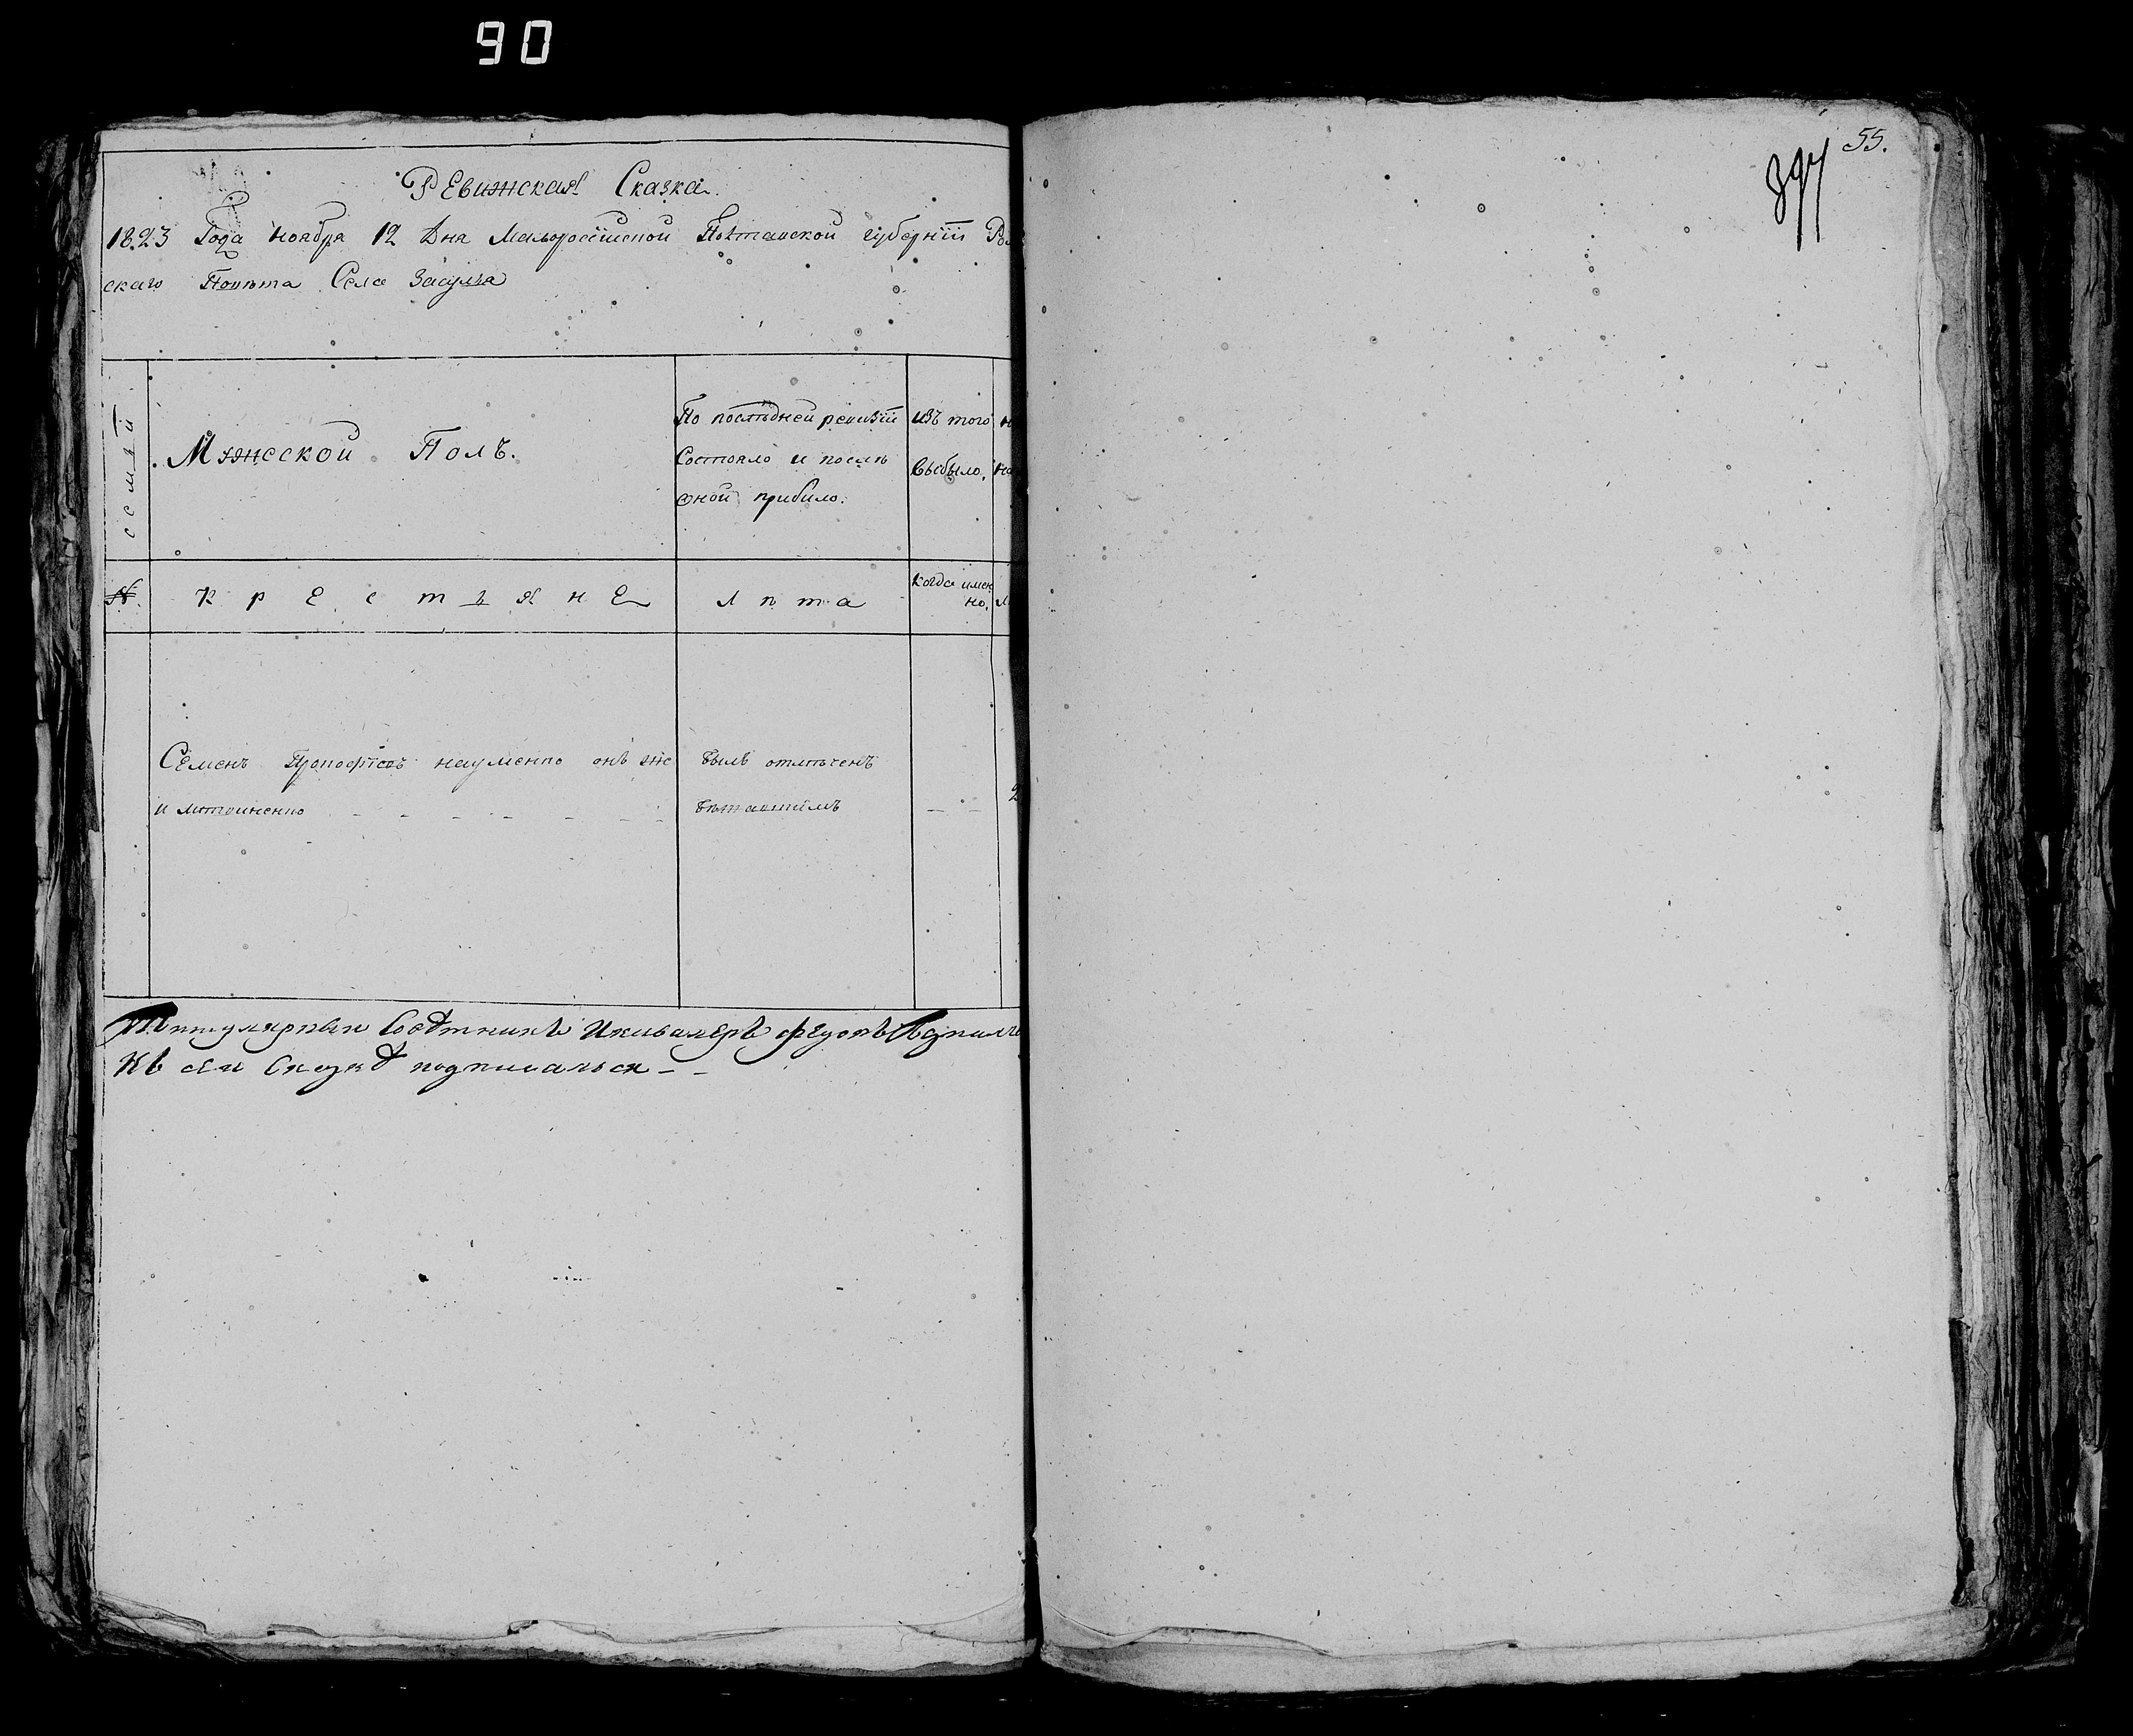 90
Ревижская Сказка.
1823 Года ноября 12 дня Малоросїйской Полтавской губернїи Ро
скаго Повѣта Села Засулья
семьи
Мужеской Полъ.
По послѣдней ревизїи
Состояло и послѣ
оной прибило.
изъ того
Выбыло.
№.
Крестьяне
лѣта
когда имен
но.
Семенъ Прокофїевъ науменко онъ же
и Литвиненко
былъ отмѣченъ
бѣглимъ
2
Титулярный Совѣтникъ Икавалеръ Федоръ
Къ сей Сказкѣ подписался
397
55.